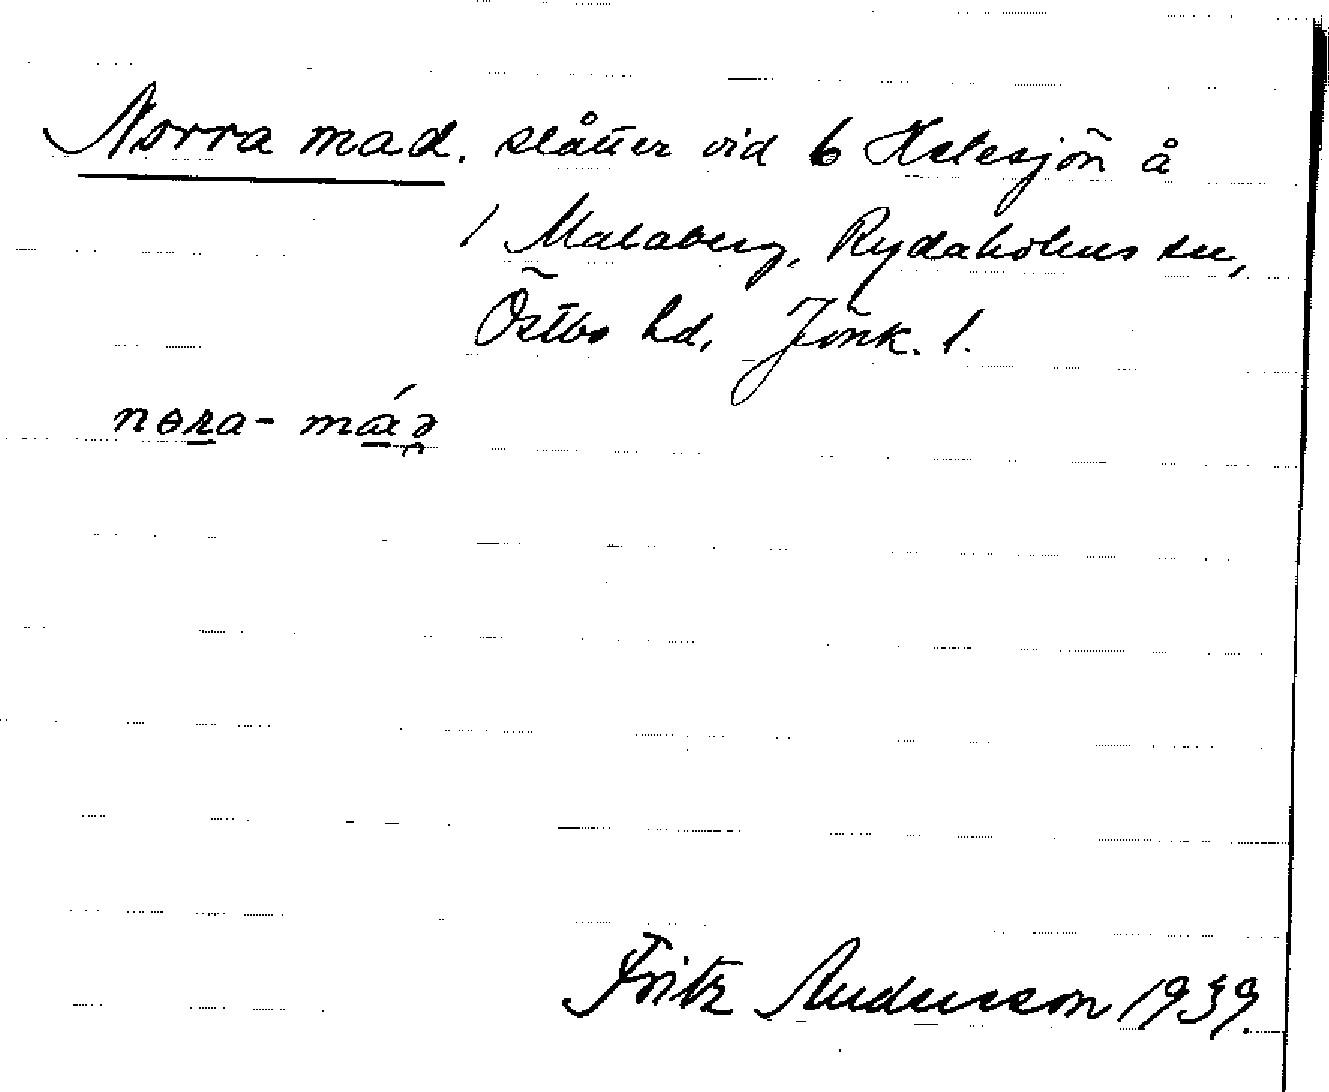 Norra mad. slåtter vid 6 Halesjön å
1 Malaberg, Rydaholms sn,
Östbo hd. Jönk. l.
nɵra- máꝺ
Fritz Andersson 1939.